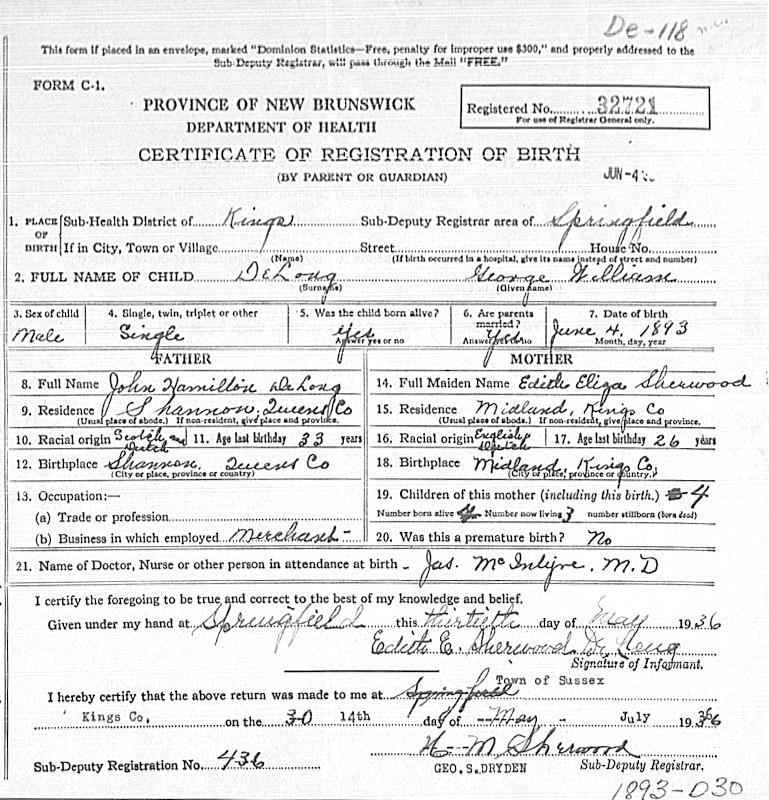 De-118 n.c.
This form if placed in an envelope, marked "Dominion Statistics—Free, penalty for improper use $300," and properly addressed to the
Sub-Deputy Registrar, will pass through the Mail "FREE."
FORM C-1.
PROVINCE OF NEW BRUNSWICK
DEPARTMENT OF HEALTH
Registered No. 32721
For use of Registrar General only.
CERTIFICATE OF REGISTRATION OF BIRTH
(BY PARENT OR GUARDIAN)
JUN-4
1. PLACE OF BIRTH Sub-Health District of Kings Sub-Deputy Registrar area of Springfield
If in City, Town or Village Street House No.
(Name) (If birth occurred in a hospital, give its name instead of street and number)
2. FULL NAME OF CHILD DeLong George William
(Surname) (Given name)
3. Sex of child 4. Single, twin, triplet or other 5. Was the child born alive? 6. Are parents married? 7. Date of birth
Male Single Yes Yes June 4, 1893
Answer yes or no Answer yes or no Month, day, year
FATHER MOTHER
8. Full Name John Hamilton DeLong 14. Full Maiden Name Edith Eliza Sherwood
9. Residence Shannon, Queens Co 15. Residence Midland, Kings Co
(Usual place of abode.) If non-resident, give place and province. (Usual place of abode.) If non-resident, give place and province.
10. Racial origin Scotch and Dutch 11. Age last birthday 33 years 16. Racial origin English Dutch 17. Age last birthday 26 years
12. Birthplace Shannon, Queens Co 18. Birthplace Midland, Kings Co.
(City or place, province or country) (City or place, province or country.)
13. Occupation:— 19. Children of this mother (including this birth.) 4
(a) Trade or profession Number born alive 4 Number now living 3 number stillborn (born dead)
(b) Business in which employed Merchant 20. Was this a premature birth? No
21. Name of Doctor, Nurse or other person in attendance at birth - Jas. McIntyre, M.D
I certify the foregoing to be true and correct to the best of my knowledge and belief.
Given under my hand at Springfield this thirtieth day of May 1936
Edith E. Sherwood De Long
Signature of Informant.
Town of Sussex
I hereby certify that the above return was made to me at Springfield
Kings Co. on the 30 14th day of --May - July 1936
H- M Sherwood
Sub-Deputy Registration No. 436 GEO. S. DRYDEN Sub-Deputy Registrar.
1893-D30